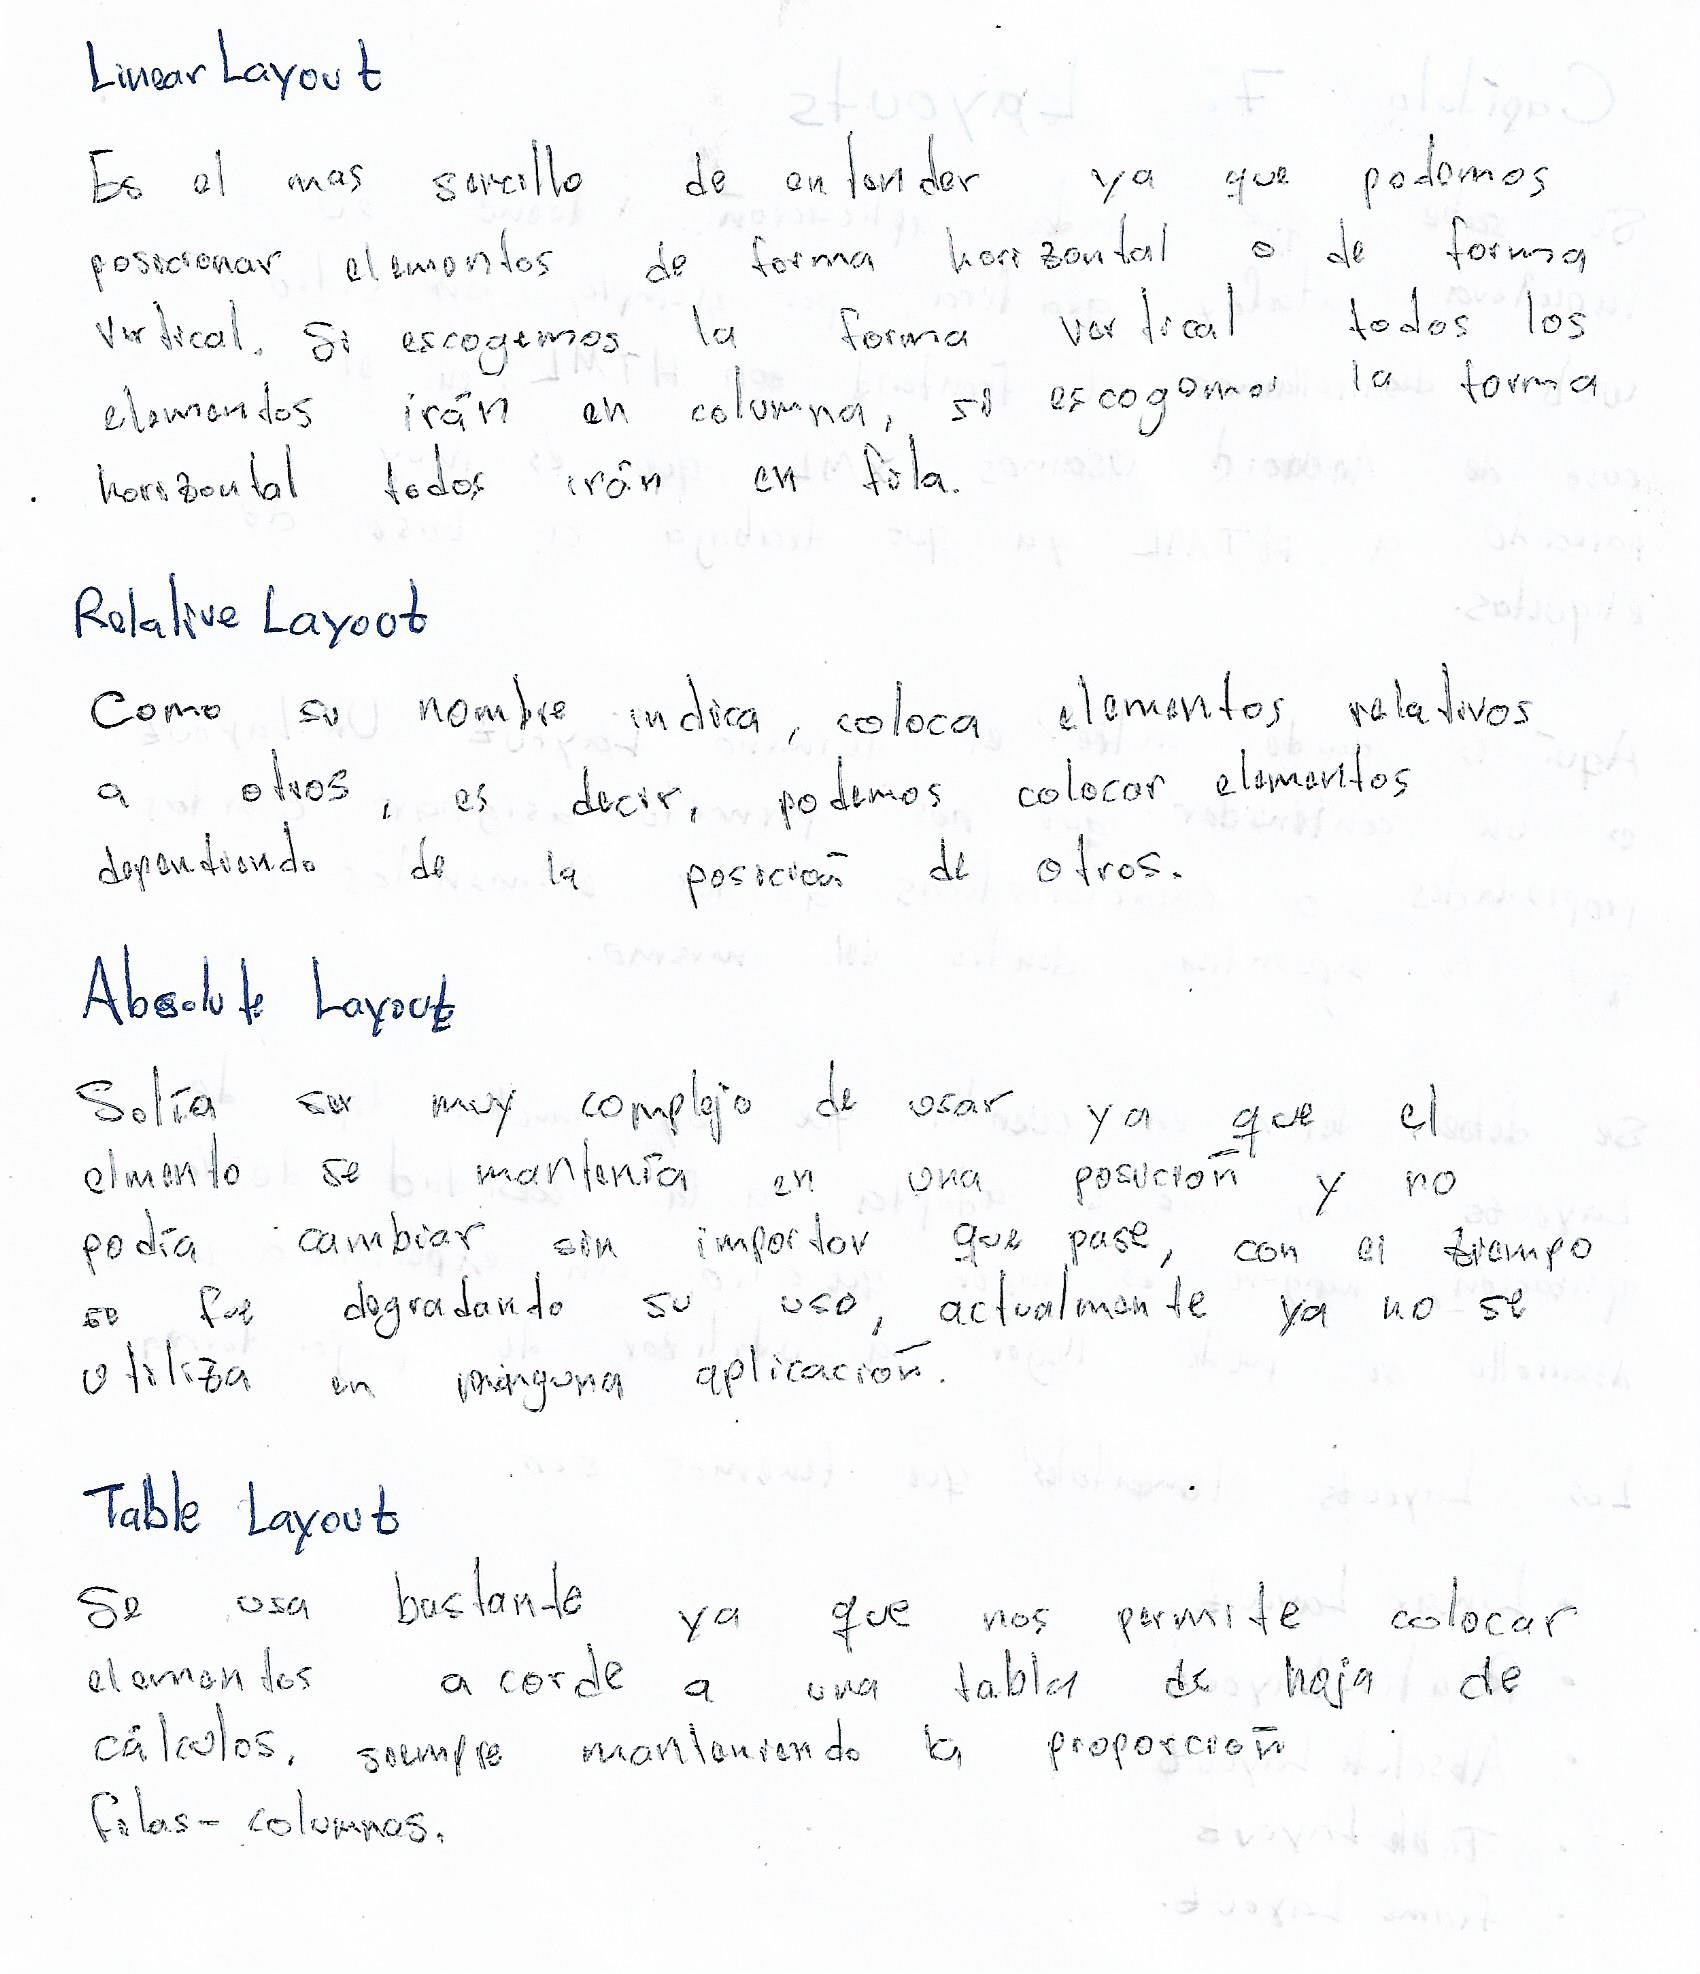 Linear Layout
Es el mas sencillo de entender ya que podemos
posicionar elementos de forma horizontal o de forma
vertical. Si escogemos la forma vertical todos los
elementos irán en columna, si escogemos la forma
horizontal todos irán en fila.
Relative Layout
Como su nombre indica, coloca elementos relativos
a otros, es decir, podemos colocar elementos
dependiendo de la posición de otros.
Absolute Layout
Solía ser muy complejo de usar ya que el
elmento se mantenía en una posición y no
podía cambiar sin importar que pase, con el tiempo
se fue degradando su uso, actualmente ya no se
utiliza en ninguna aplicación.
Table Layout
Se usa bastante ya que nos permite colocar
elementos acorde a una tabla de hoja de
cálculos, siempre manteniendo la proporción
filas-columnas.